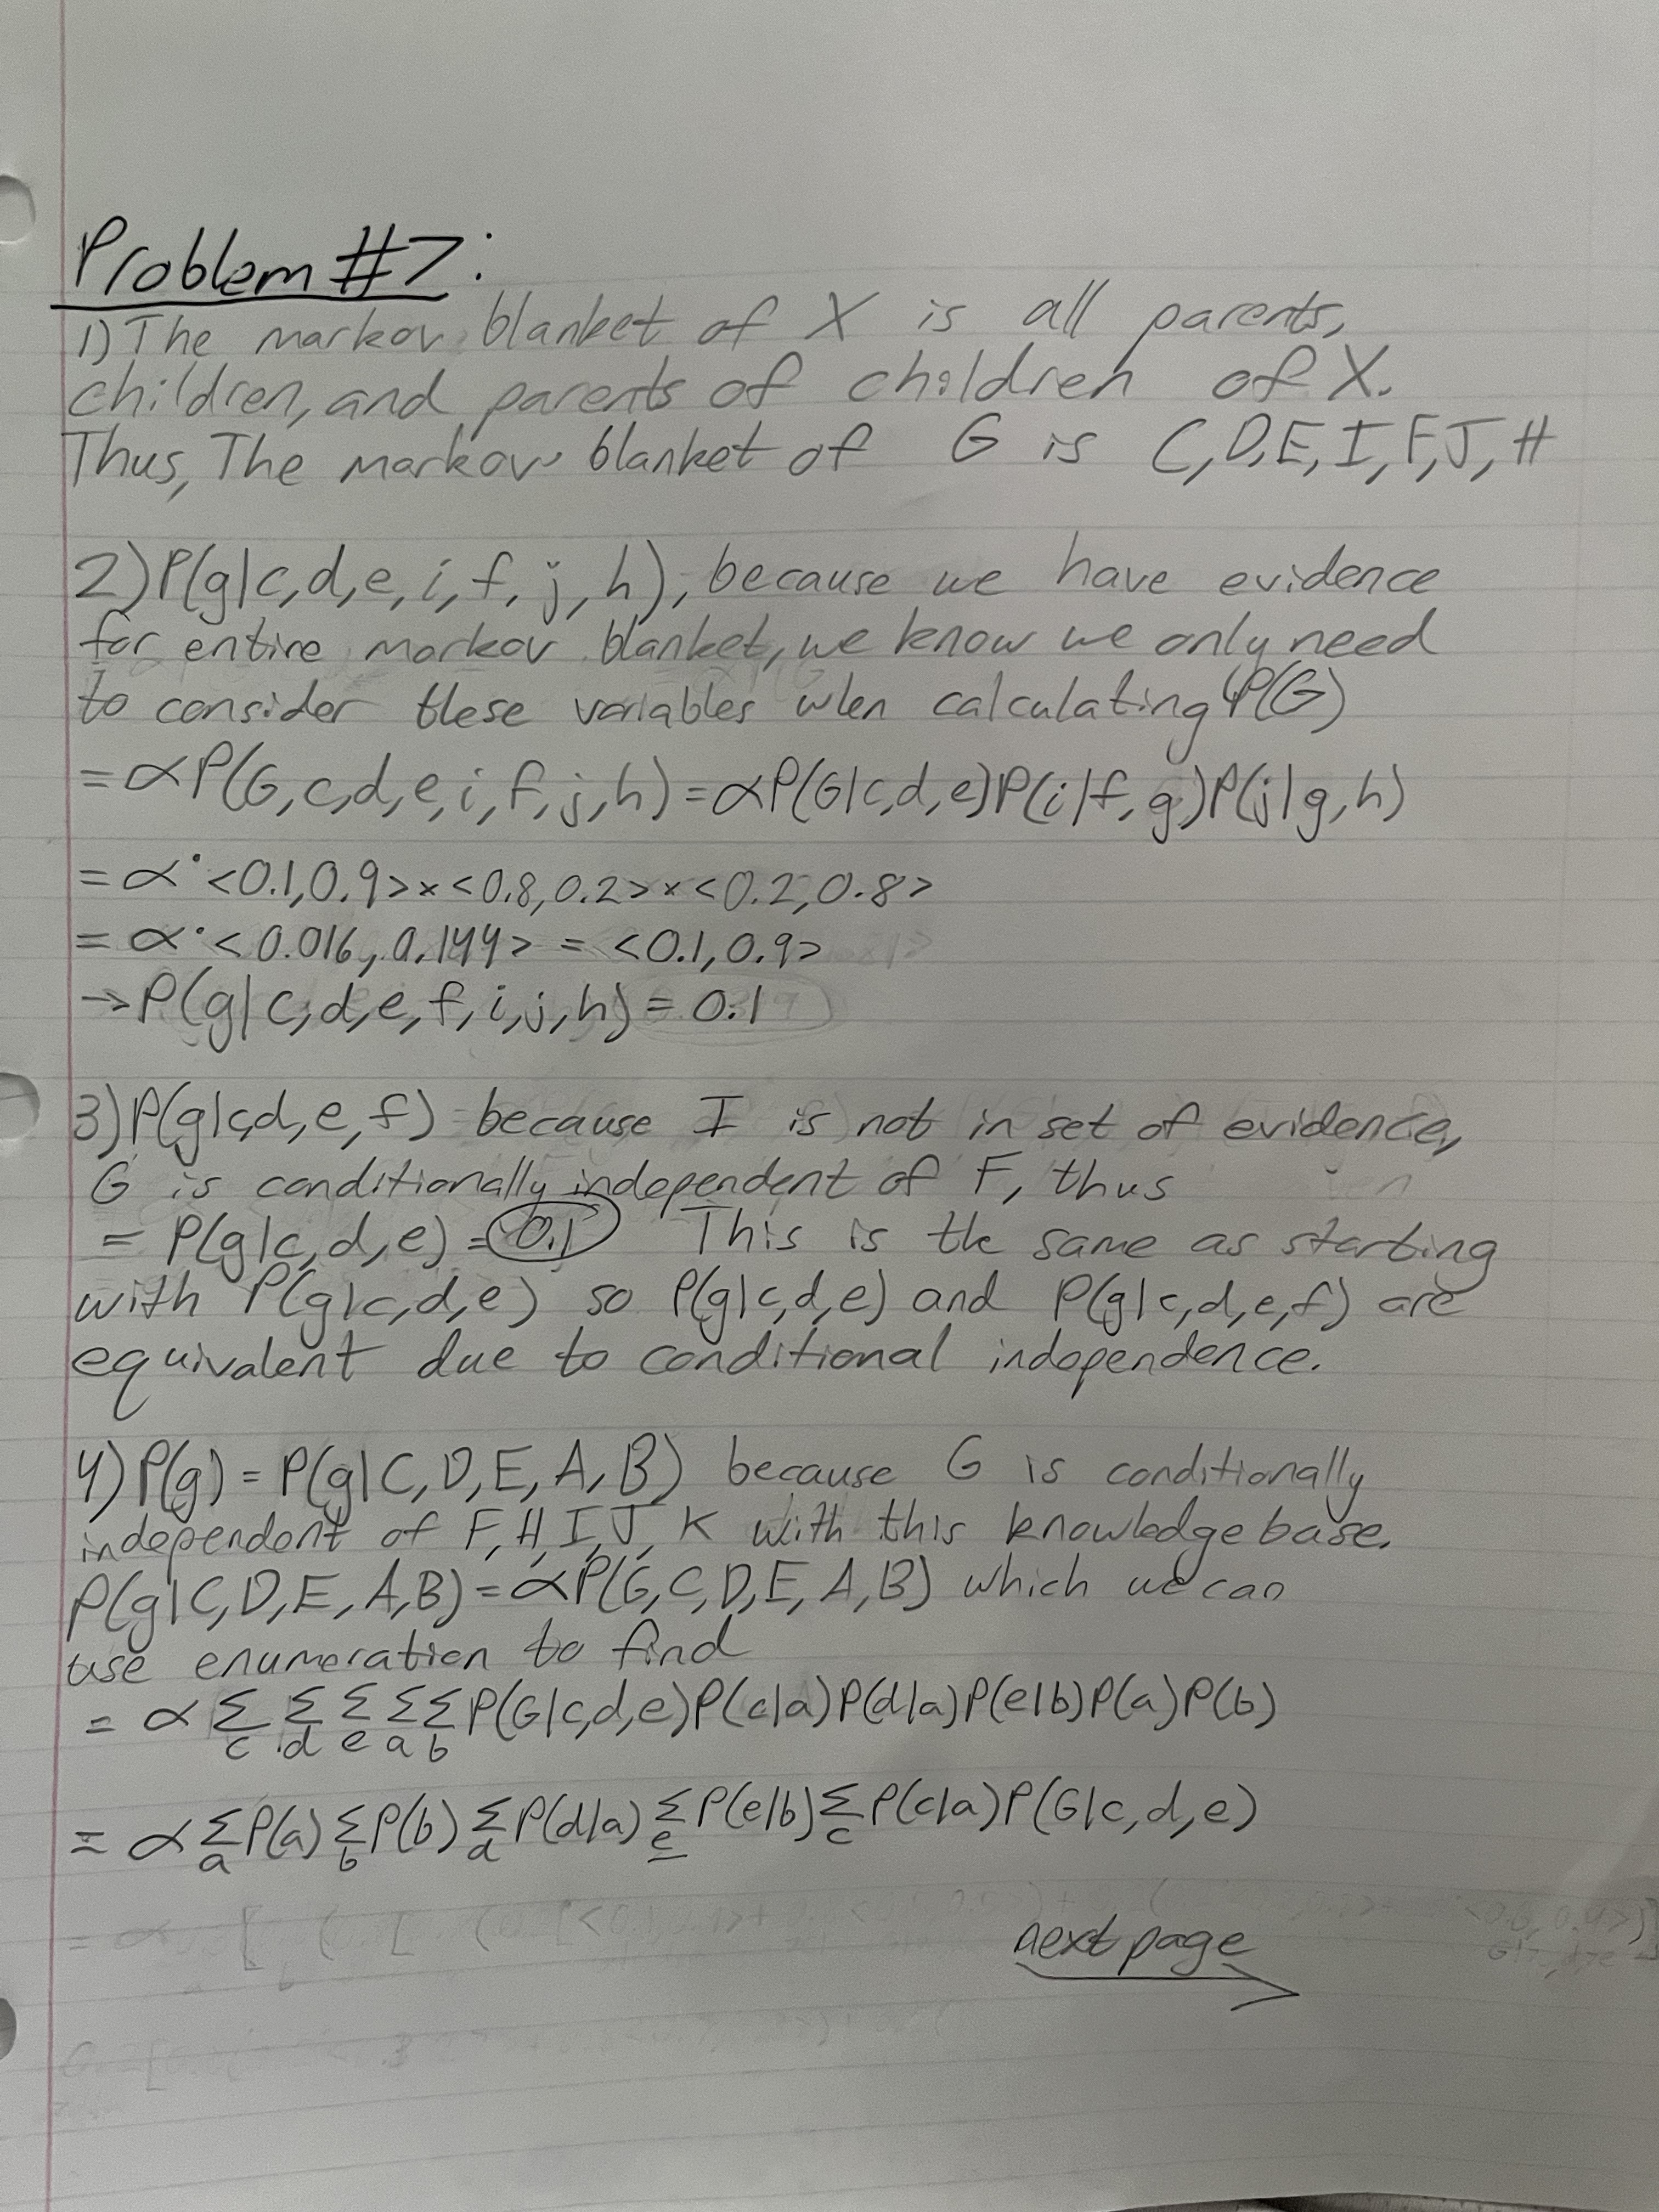 Problem #7:
1) The markov blanket of X is all parents,
children, and parents of children of X.
Thus, The markov blanket of G is C,D,E,I,F,J,H
2) P(g|c,d,e,i,f,j,h), because we have evidence
for entire markov blanket, we know we only need
to consider these variables when calculating P(G)
= αP(G,c,d,e,i,f,j,h) = αP(G|c,d,e)P(i|f,g)P(j|g,h)
= α·<0.1,0.9>×<0.8,0.2>×<0.2,0.8>
= α·<0.016,0.144> = <0.1,0.9>
→P(g|c,d,e,f,i,j,h) = 0.1
3) P(g|c,d,e,f) because I is not in set of evidence,
G is conditionally independent of F, thus
= P(g|c,d,e) = 0.1 This is the same as starting
with P(g|c,d,e) so P(g|c,d,e) and P(g|c,d,e,f) are
equivalent due to conditional independence.
4) P(g) = P(g|C,D,E,A,B) because G is conditionally
independent of F,H,I,J,K with this knowledge base.
P(g|C,D,E,A,B) = αP(G,C,D,E,A,B) which we can
use enumeration to find
= α Σc Σd Σe Σa Σb P(G|c,d,e)P(c|a)P(d|a)P(e|b)P(a)P(b)
= α Σa P(a) Σb P(b) Σd P(d|a) Σe P(e|b) Σc P(c|a)P(G|c,d,e)
next page